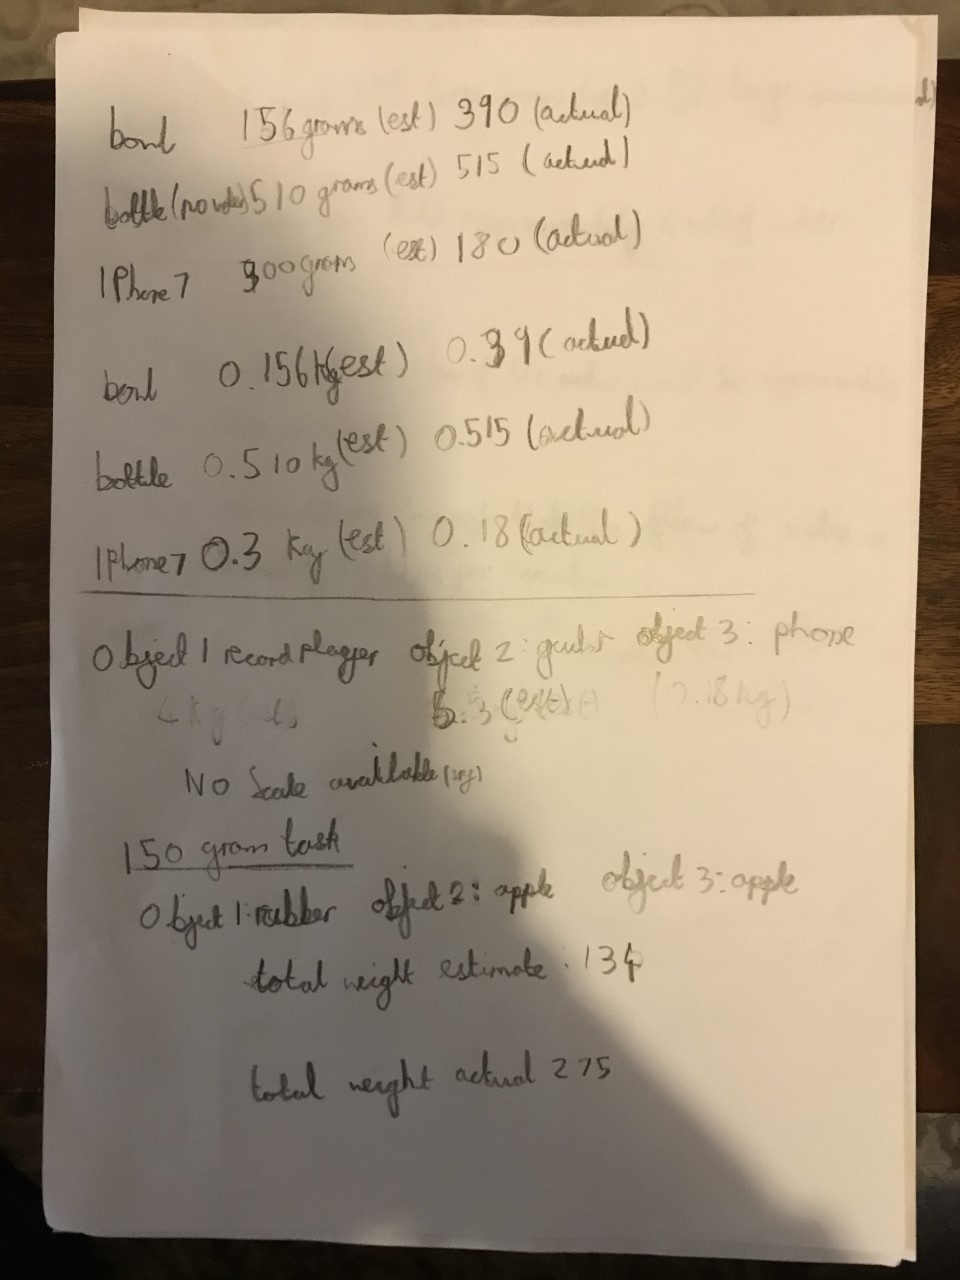 bowl 156 grams (est) 390 (actual)
bottle (no water) 510 grams (est) 515 (actual)
IPhone 7 300 grams (est) 180 (actual)
bowl 0.156 kg (est) 0.39 (actual)
bottle 0.510 kg (est) 0.515 (actual)
IPhone 7 0.3 kg (est) 0.18 (actual)
Object 1 record player object 2: guitar object 3: phone
4 kg 5.3 (est) (0.18 kg)
No Scale available
150 gram task
Object 1: rubber object 2: apple object 3: apple
total weight estimate: 134
total weight actual 275